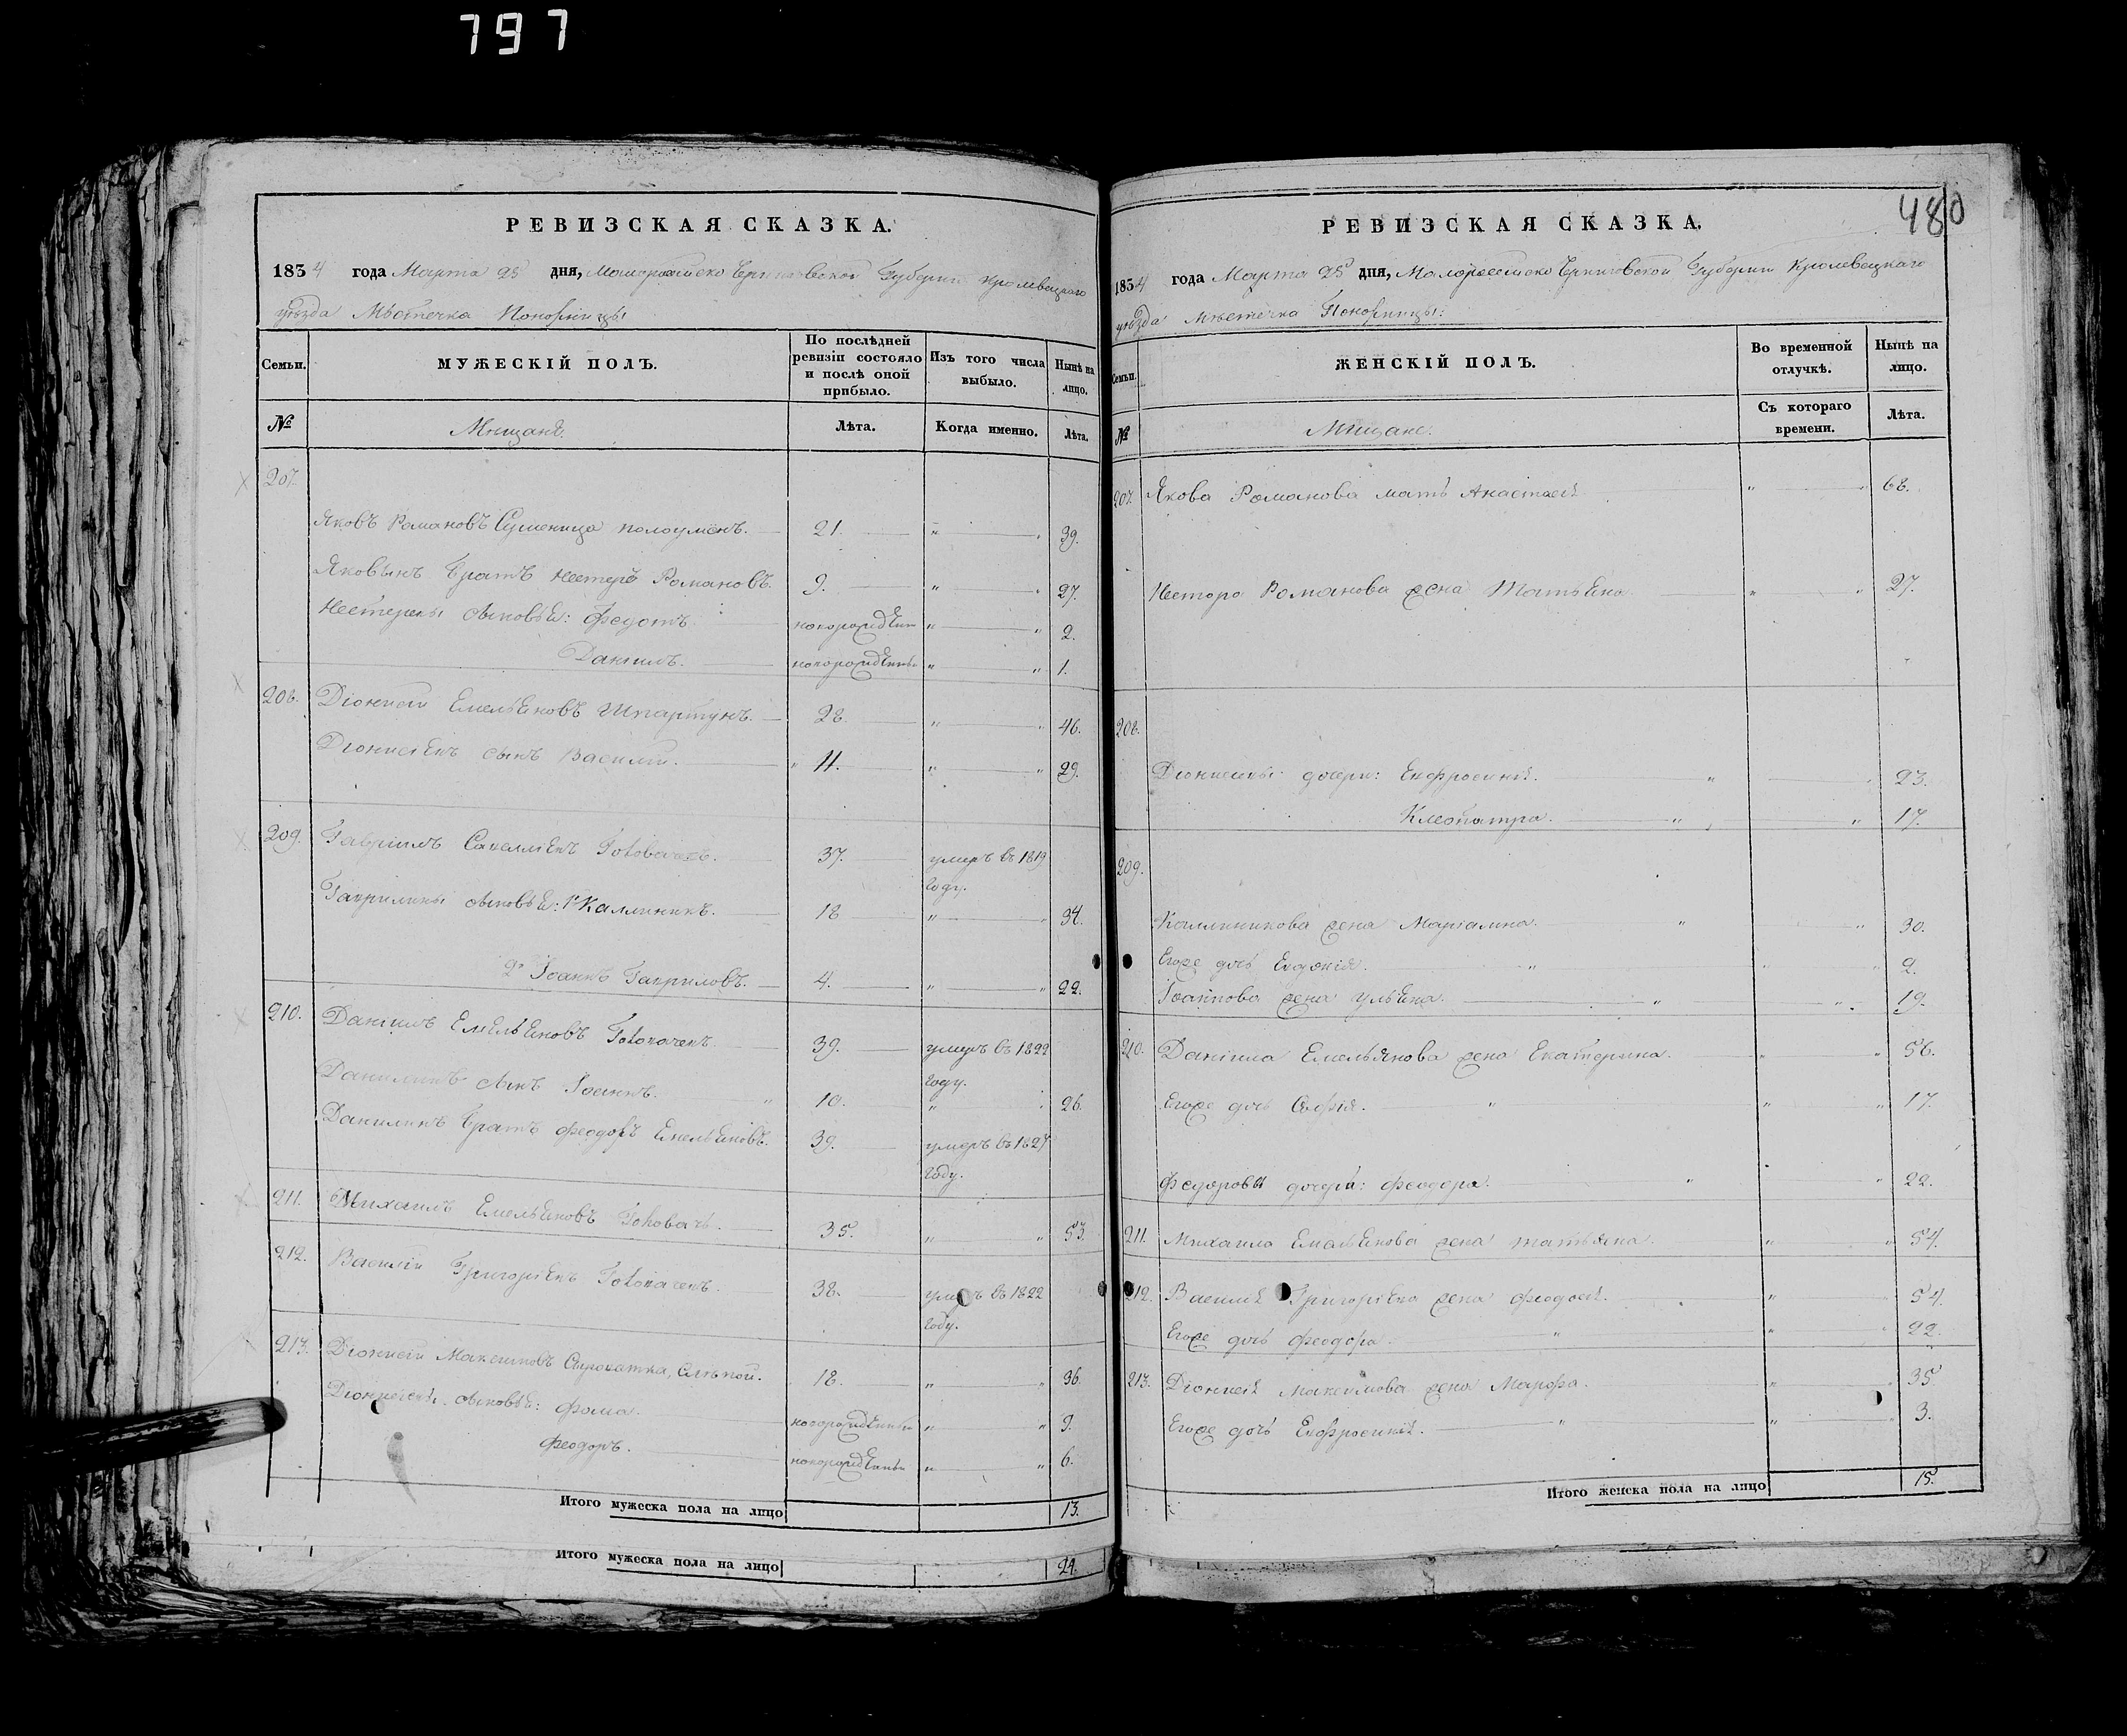 797
РЕВИЗСКАЯ СКАЗКА.
1834 года Марта 25 дня, Малороссійско Черниговской Губерніи Кролевецкаго
уѣзда Мѣстечка Понорницы
Семьи. МУЖЕСКІЙ ПОЛЪ. По послѣдней ревизіи состояло и послѣ оной прибыло. Изъ того числа выбыло. Нынѣ на лицо.
№ Мѣщане. Лѣта. Когда именно. Лѣта.
207.
Яковъ Романовъ полоуменъ. 21. " " 39.
Яковынъ братъ Нестеръ Романовъ. 9. " " 27.
Нестеровы сыновья: Федотъ новорожденн " " 2.
Даніилъ. новорожденны " " 1.
208. Діонисій Емельяновъ Шпартунъ. 28. " " 46.
Діонисіевъ сынъ Василій. " 11. " " 29.
209. Гавріилъ 37. умеръ въ 1819
году.
Гаврилины сыновья: 1й Каллиникъ. 18 " " 34.
2й Іоаннъ Гавриловъ. 4. " " 22.
210. Даніилъ Емельяновъ 39. умеръ въ 1822
году.
Данилинъ сынъ Іоаннъ. " 10. " " 26.
Данилинъ братъ Феодоръ Емельяновъ. 39. умеръ въ 1827
году.
211. Михаилъ Емельяновъ 35. " " 53.
212. Василій Григоріевъ 38. умеръ въ 1822
году.
213. Діонисій Максимовъ Сыроватка, слѣпой. 18. " " 36.
Діонисіевы сыновья: Фома. новорожденны " " 9.
Феодоръ. новорожденны " " 6.
Итого мужеска пола на лицо 13.
Итого мужеска пола на лицо 24.
480
РЕВИЗСКАЯ СКАЗКА.
1834 года Марта 25 дня, Малороссійско Черниговской Губерніи Кролевецкаго
уѣзда Мѣстечка Понорницы:
Семьи. ЖЕНСКІЙ ПОЛЪ. Во временной отлучкѣ. Нынѣ на лицо.
№ Мѣщане. Съ котораго времени. Лѣта.
207. Якова Романова мать Анастасія " " 68.
Нестора Романова жена Татьяна " " 27.
208.
Діонисіевы дочери: Евфросинія. " " 23.
Клеопатра. " " 17.
209.
Каллиникова жена Маріамна. " " 30.
Егоже дочь Евдокія. " " " 2.
Іоаннова жена Ульяна. " " 19.
210. Даніила Емельянова жена Екатерина. " " 56.
Егоже дочь Софія. " " " 17.
Федоровы дочери: Феодора. " " " 22.
211. Михаила Емельянова жена Татьяна. " " 54.
212. Василія Григоріева жена Феодосія. " " 54.
Егоже дочь Феодора. " " " 22.
213. Діонисія Максимова жена Марфа. " " 35
Егоже дочь Евфросинія. " " " 3.
Итого женска пола на лицо 15.